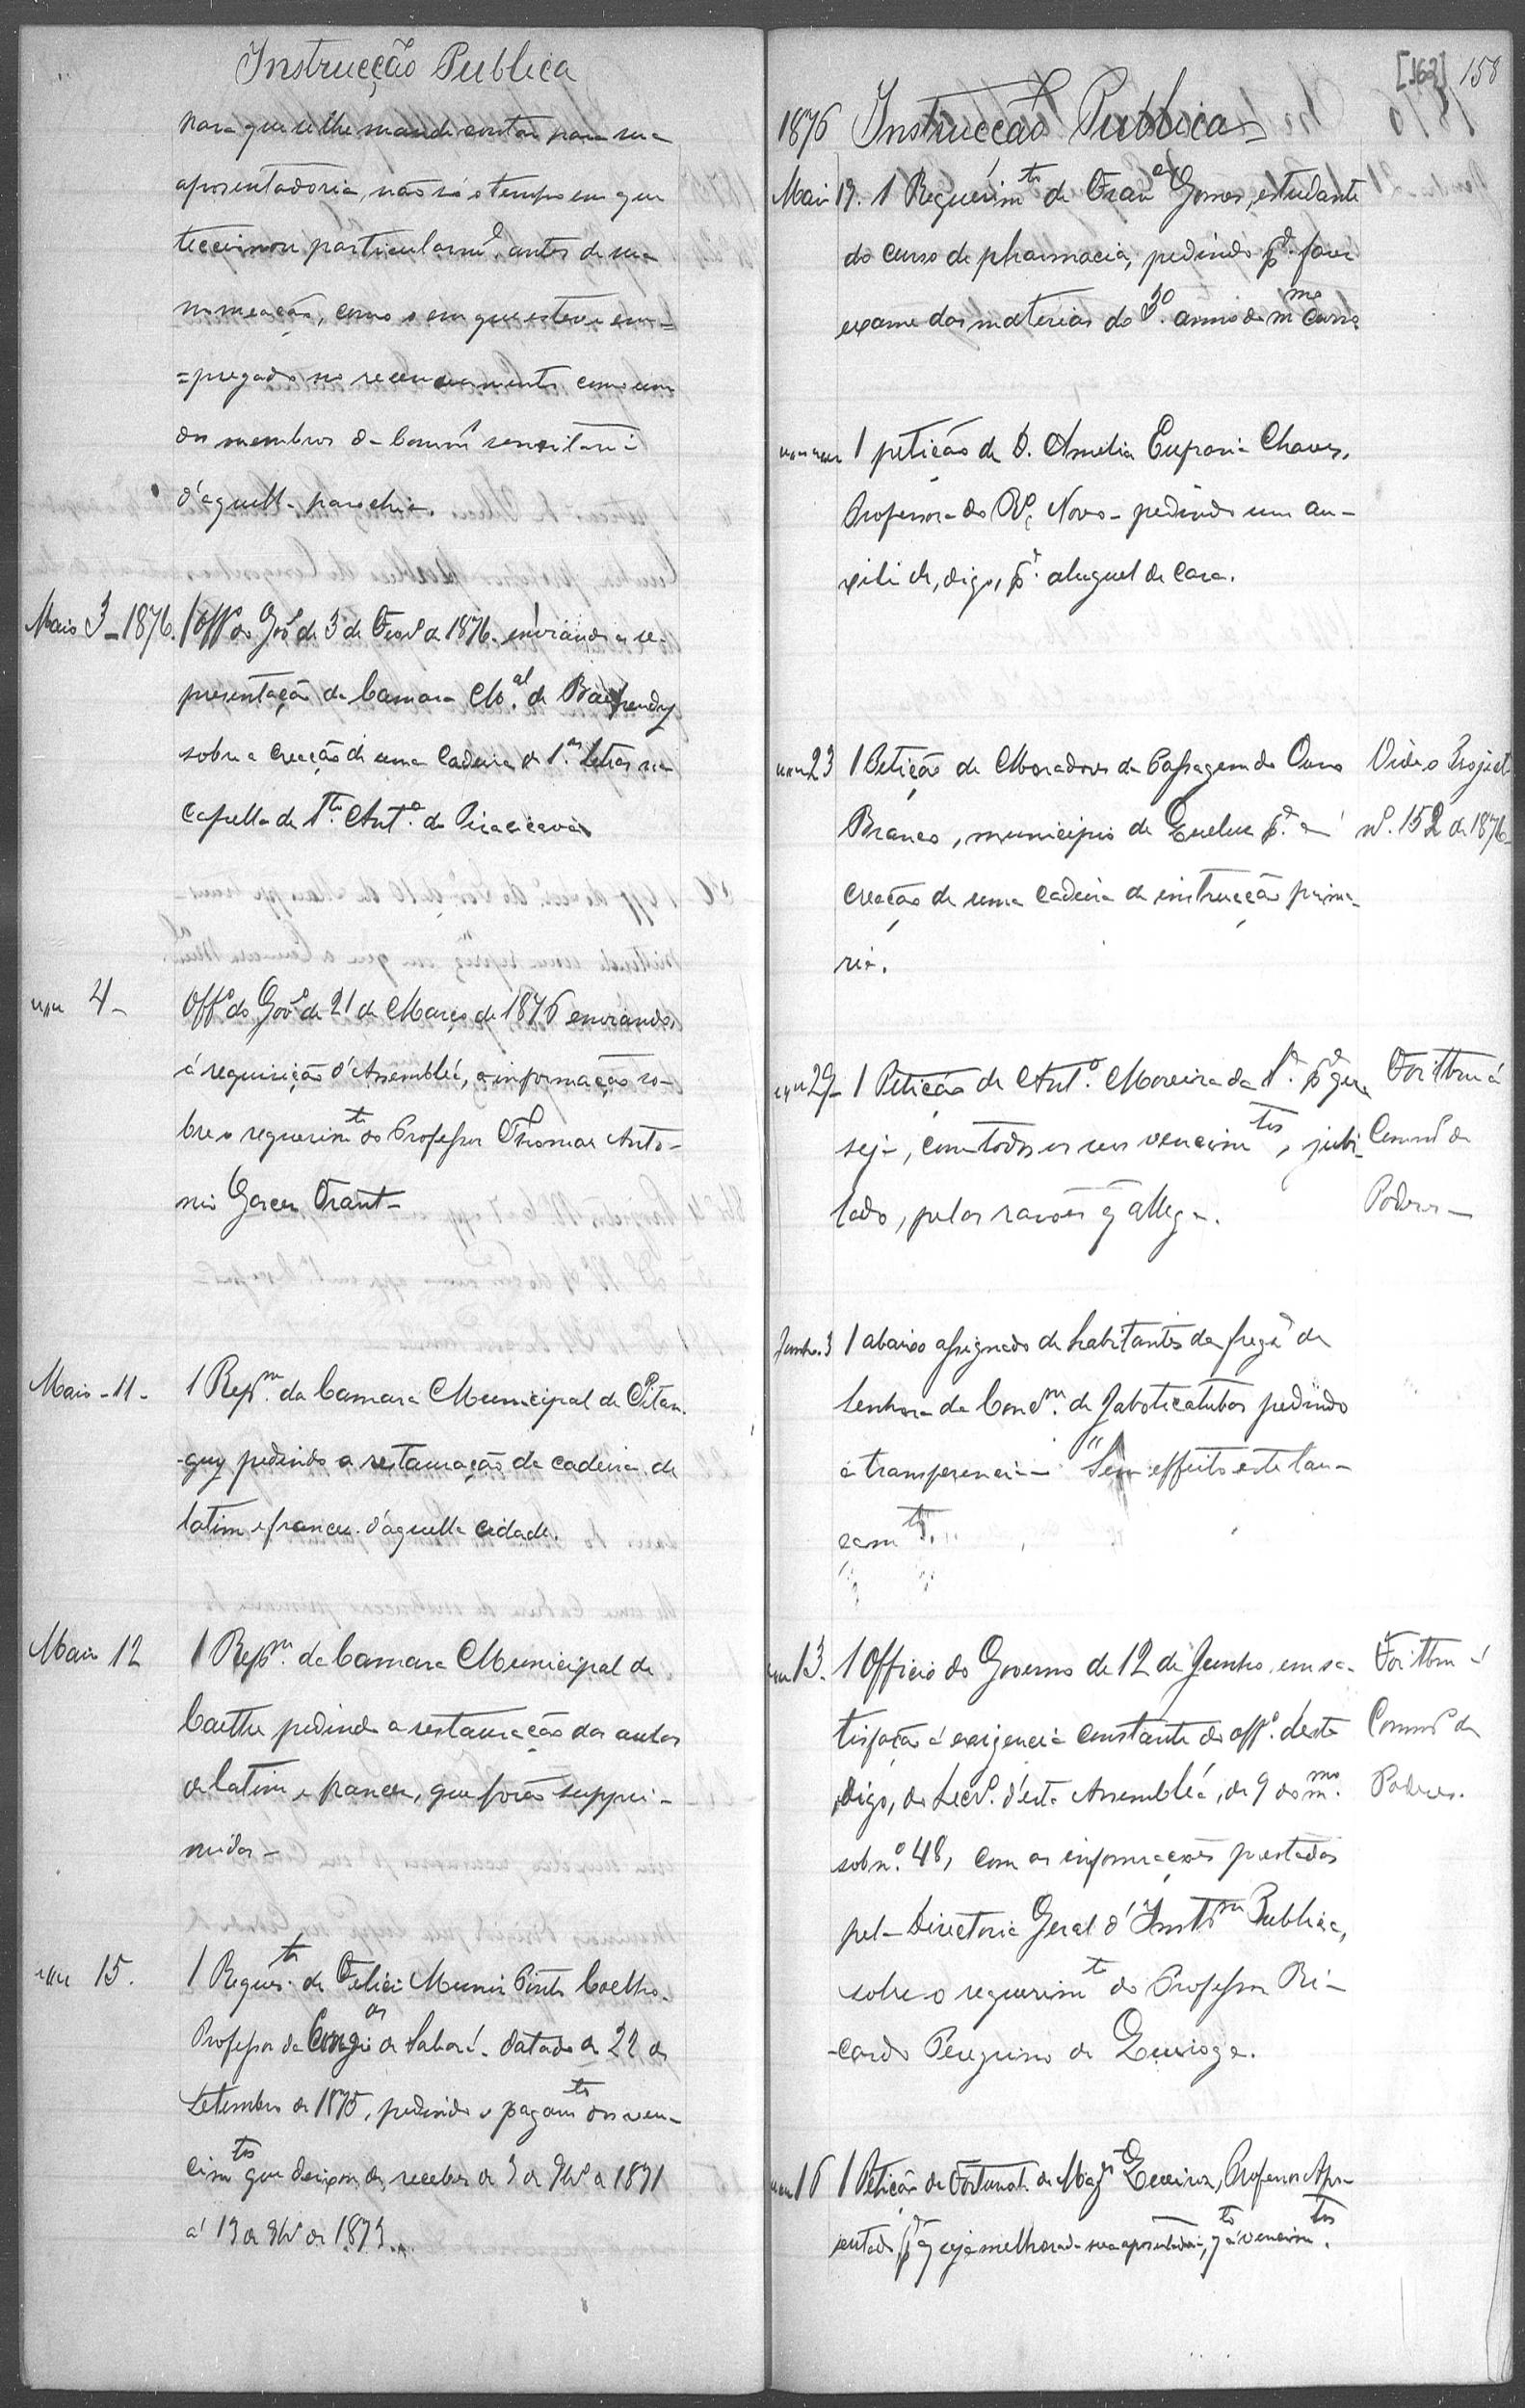 Instrucção Publica
para que se lhe mande contar para sua
aposentadoria, não só o tempo em que
leccionou particularm.e antes de sua
nomeação, como o em que esteve em=
=pregado no recenseamento como um
dos membros da Commm censitaria
d'aquella parochia.
Maio 3_1876. 1 Off.o do Gov.o de 3 de Fevr.o de 1876. enviando a re-
presentação da Camara M.al de Baependy
sobre a creação de uma Cadeira de 1.as Letras na
Capella de S.to Ant.o do Piracicava
" " 4_ Off.o do Gov.o de 21 de Março de 1876 enviando,
á requisição d'Assembléa, a informação so-
bre o requerim.to do Professor Thomaz Anto-
nio
Maio-11- 1 Rep.m da Camara Municipal de Pitan-
-guy pedindo a restauração da cadeira de
latim e francez d'aquella cidade.
Maio 12 1 Rep.m da Camara Municipal de
Caethe pedindo a restauração das aulas
de latim e francez, que forão suppri-
midas_
" " 15. 1 Requer.to de Felicio Muniz Pinto Coelho.
Professor da de Sabará. datado de 22 de
Setembro de 1875, pedindo o pagam.to dos ven-
cim.tos que deixou de receber de 3 de 9br.o de 1871
á 13 de de 1873
[162] 158
1876 Instrucção Publica
Maio 19. 1 Requerim.to de Gomes, estudante
do curso de pharmacia, pedindo p.a fazer
exame das materias do 3.o anno do m.mo curso
" " " 1 petição de D. Amelia Eufrasia Chaves,
Professora do R.o Novo_ pedindo um au-
xilio de, digo, p.a aluguel de casa.
" " 23 1 Petição de Moradores da Passagem do Ouro
Branco, municipio de Queluz p.a a
creação de uma cadeira de instrucção prima-
ria.
Vide o Project
n.o 152 de 1876
" " 29_ 1 Petição de Ant.o Moreira da S.a p.a que
seja, com todos os seus vencim.tos, jubi-
lado, pelas rasões q allega.
Foi tbm á
Commm de
Poderes_
Junho. 3 1 abaixo assignado de habitantes da freg.a de
Senhora da Conc.m de Jaboticatubas pedindo
a transferencia_ "Sem effeito este lan-
çam.to"
" " 13. 1 Officio do Governo de 12 de Junho em sa-
tisfação á exigencia constante do off.o deste
digo, do Secr.o d'esta Assembléa, de 9 do m.mo
sob n.o 48, com as informações prestadas
pela Directoria Geral d'Inst.m Publica,
sobre o requerim.to do Professor Ri-
-cardo Peregrino de Quiroga.
Foi tbm á
Commm de
Poderes.
" " 16 1 Petição de Fortunato de Queiroz, Professor Apo-
sentado, p.a q seja melhorada sua aposentadoria, vencim.tos